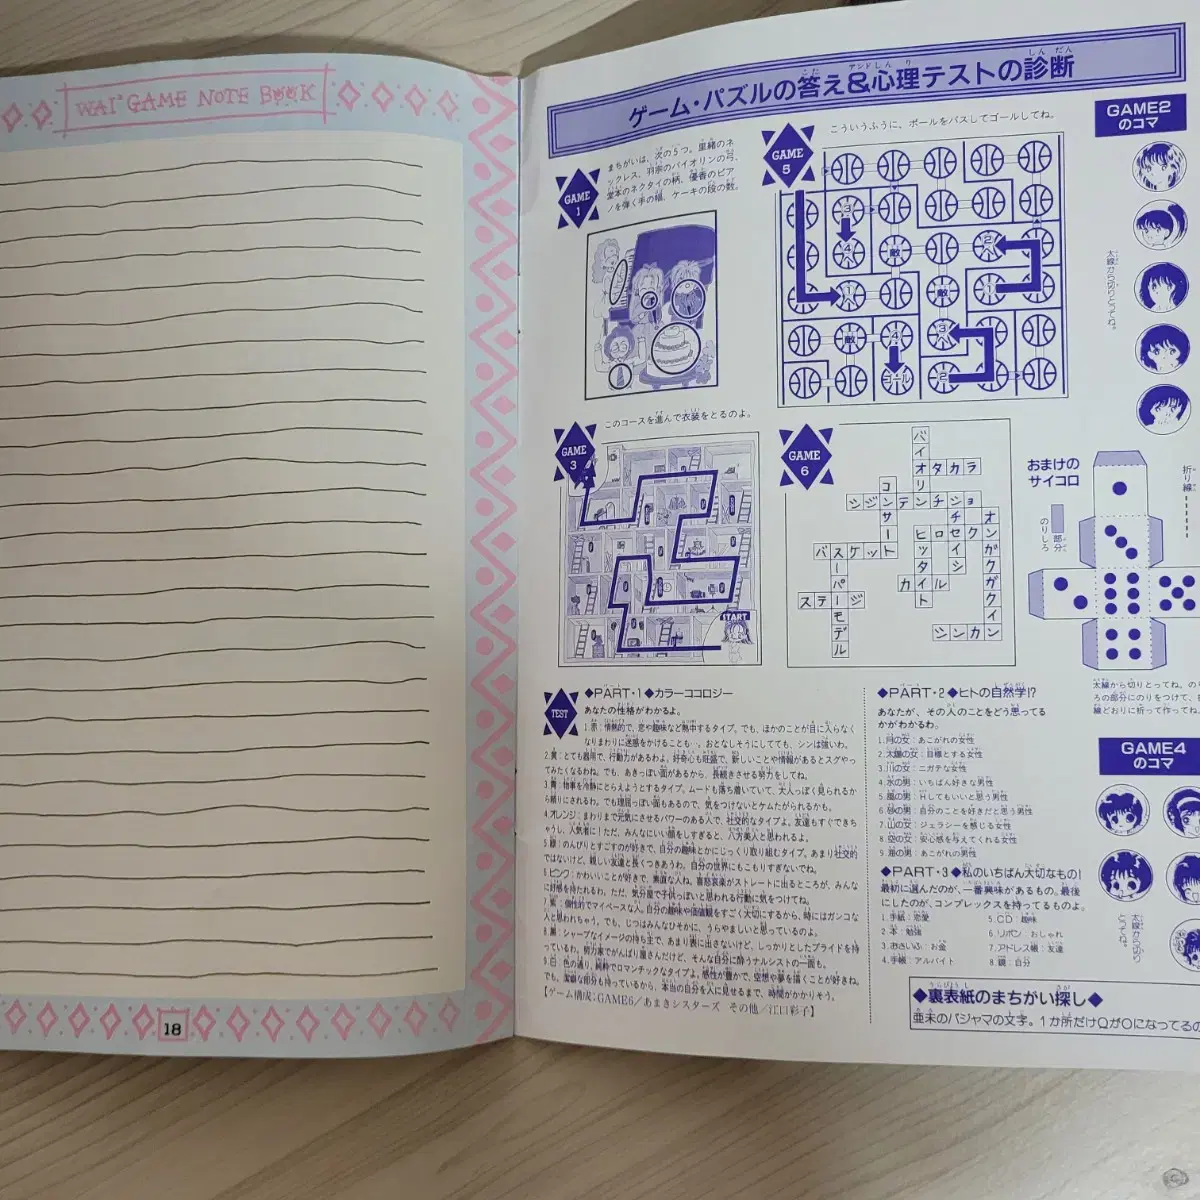 WAI² GAME NOTE BOOK
18
ゲーム・パズルの答え&心理テストの診断
GAME 1
まちがいは、次の5つ。里緒のネ
ックレス、羽宗のバイオリンの弓、
堂本のネクタイの柄、優香のピア
ノを弾く手の幅、ケーキの段の数。
GAME 5
こういうふうに、ボールをパスしてゴールしてね。
3
4
敵
2
1
敵
1
敵
4
3
ゴール
2
GAME2
のコマ
太線から切りとってね。
GAME 3
このコースを進んで衣装をとるのよ。
START
GAME 6
バイオリン
タカラ
コンサート
シジンテンチショ
チセイシ
オンガクガクイン
ヒロセク
ヒッタイト
バスケット
スーパーモデル
カイル
ステージ
シンカン
おまけの
サイコロ
のりしろ
部分
折り線
太線から切りとってね。の
ろの部分にのりをつけて、
線どおりに折って作ってね
TEST
◆PART・1◆カラーココロジー
あなたの性格がわかるよ。
1.赤：情熱的で、恋や趣味など熱中するタイプ。でも、ほかのことが目に入らなく
なりまわりに迷惑をかけることも…。おとなしそうにしてても、シンは強いわ。
2.黄：とても器用で、行動力があるわよ。好奇心も旺盛で、新しいことや情報があるとスグやっ
てみたくなるわね。でも、あきっぽい面があるから、長続きさせる努力をしてね。
3.青：物事を冷静にとらえようとするタイプ。ムードも落ち着いていて、大人っぽく見られるか
ら頼りにされるわ。でも理屈っぽい面もあるので、気をつけないとケムたがられるかも。
4.オレンジ：まわりまで元気にさせるパワーのある人で、社交的なタイプよ。友達もすぐできち
ゃうし、人気者に！ただ、みんなにいい顔をしすぎると、八方美人と思われるよ。
5.緑：のんびりとすごすのが好きで、自分の趣味とかにじっくり取り組むタイプ。あまり社交的
ではないけど、親しい友達と長くつきあうわ。自分の世界にもこもりすぎないでね。
6.ピンク：かわいいことが好きで、素直な人ね。喜怒哀楽がストレートに出るところが、みんな
に好感を持たれるわ。ただ、気分屋で子供っぽいと思われる行動に気をつけてね。
7.紫：個性的でマイペースな人。自分の趣味や価値観をすごく大切にするから、時にはガンコな
人と思われちゃう。でも、じつはみんなひそかに、うらやましいと思っているのよ。
8.黒：シャープなイメージの持ち主で、あまり表に出さないけど、しっかりとしたプライドを持
っているわ。努力家でがんばり屋さんだけど、そんな自分に酔うナルシストの一面も。
9.白：色の通り、純粋でロマンチックなタイプよ。感性が豊かで、空想や夢を描くことが好きね。
でも、潔癖な部分も持っているから、本当の自分を人に見せるまで、時間がかかりそう。
【ゲーム構成：GAME6／あまきシスターズ その他／江口彩子】
◆PART・2◆ヒトの自然学!?
あなたが、その人のことをどう思ってる
かがわかるわ。
1.月の女：あこがれの女性
2.太陽の女：目標とする女性
3.川の女：ニガテな女性
4.水の男：いちばん好きな男性
5.風の男：Hしてもいいと思う男性
6.砂の男：自分のことを好きだと思う男性
7.山の女：ジェラシーを感じる女性
8.空の女：安心感を与えてくれる女性
9.海の男：あこがれの男性
◆PART・3◆私のいちばん大切なもの！
最初に選んだのが、一番興味があるもの。最後
にしたのが、コンプレックスを持ってるものよ。
1.手紙：恋愛
2.本：勉強
3.おさいふ：お金
4.手帳：アルバイト
5.CD：趣味
6.リボン：おしゃれ
7.アドレス帳：友達
8.鏡：自分
GAME4
のコマ
太線から切り
とってね。
◆裏表紙のまちがい探し◆
亜未のパジャマの文字。1か所だけQがOになってるの